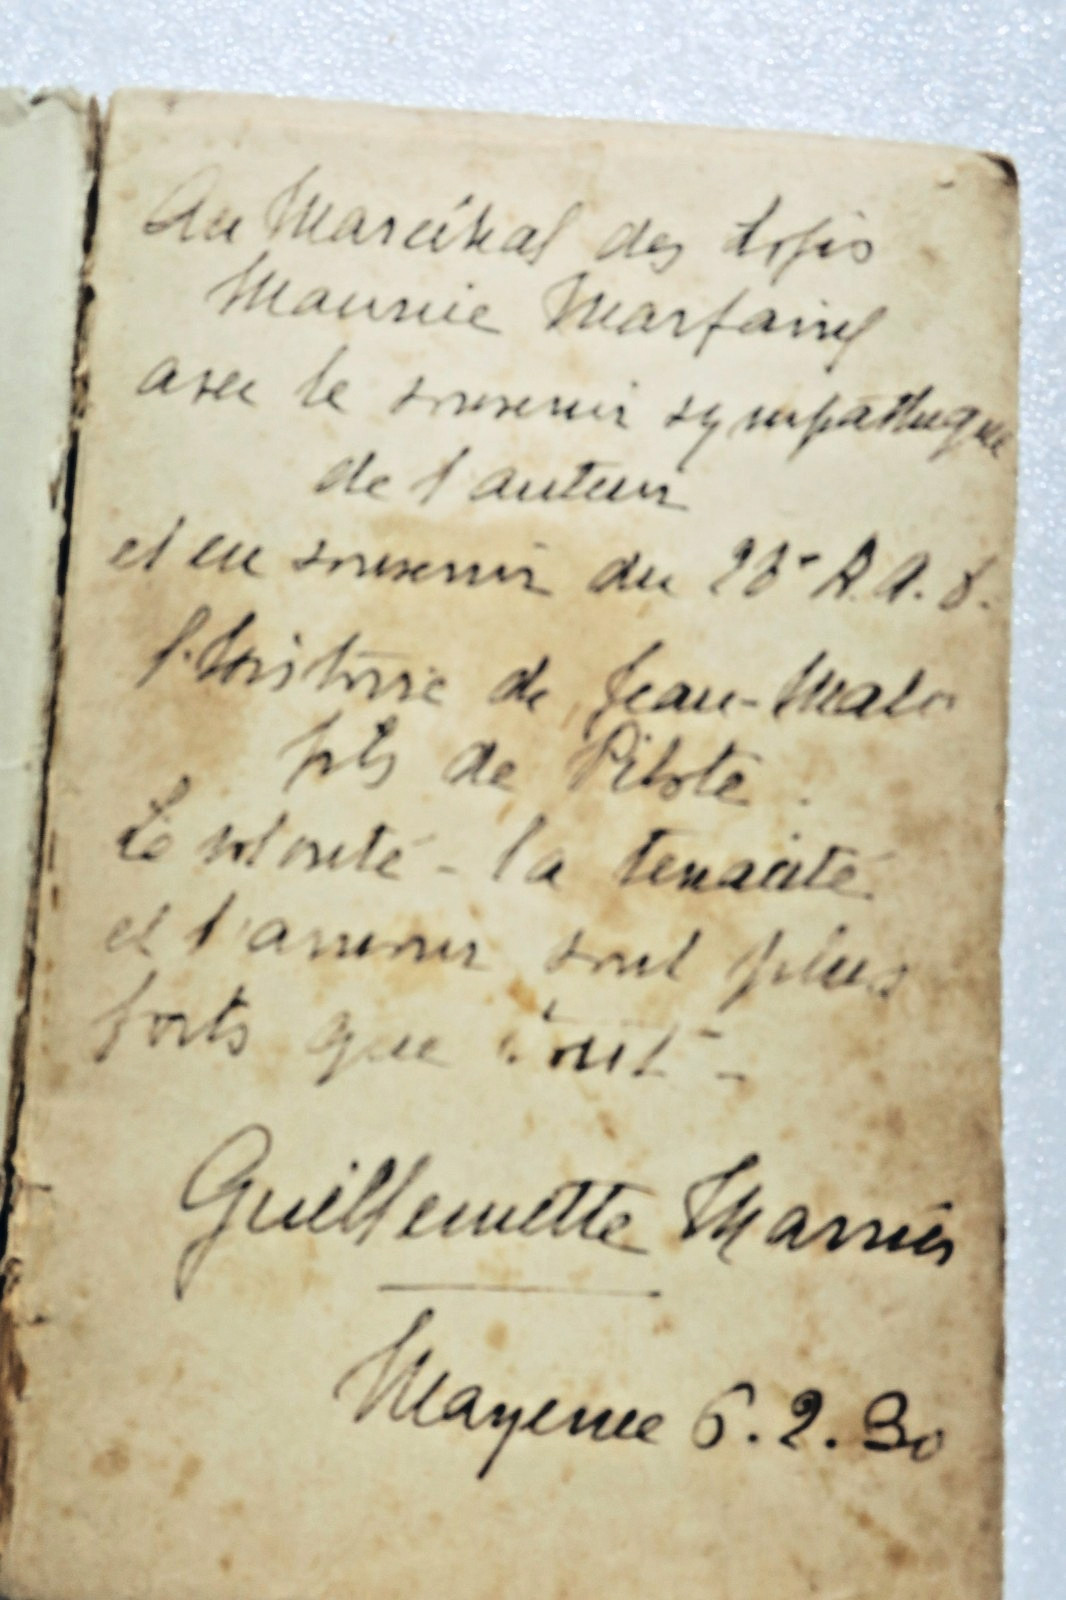 Au Maréchal des Logis
Maurice Marfaing
avec le souvenir sympathique
de l'auteur
et en souvenir du 23e R.A.
l'histoire de Jean-Malo
fils de Pilote.
La volonté - la tenacité
et l'amour sont plus
forts que tout -
Guillemette Marrier
Mayence 6.2.30